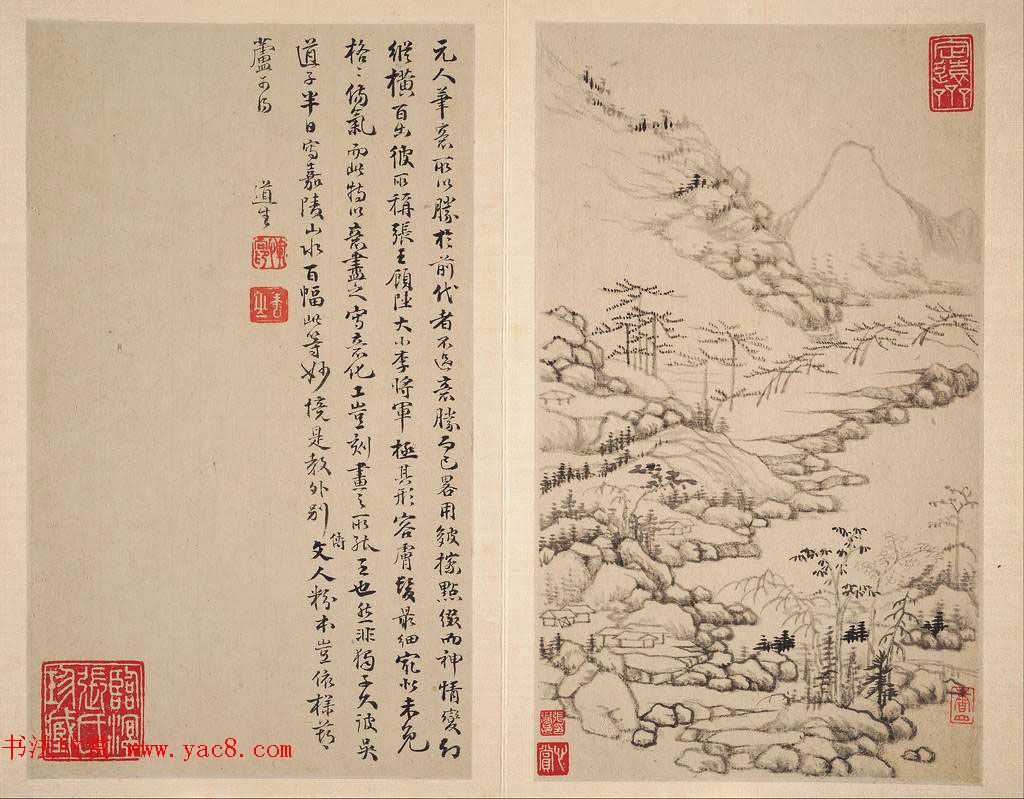 元人筆意所以勝於前代者不過意勝而已畧用皴擦點綴而神情變幻
縱橫百出彼所稱張王顧陸大小李將軍極其形容膚髮最細未免
格〻傷氣而此特以意盡之寫意化工豈刻畫之所能至也然非獨子久彼吳
道子半日寫嘉陵山水百幅此等妙境是教外別傳文人粉本豈依樣葫
蘆可得
道生
張氏
珍藏
书法 www.yac8.com